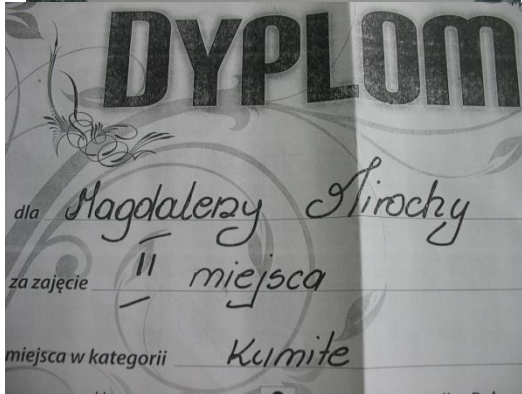 DYPLOM
dla Magdaleny Mirochy
za zajęcie II miejsca
miejsca w kategorii Kumite